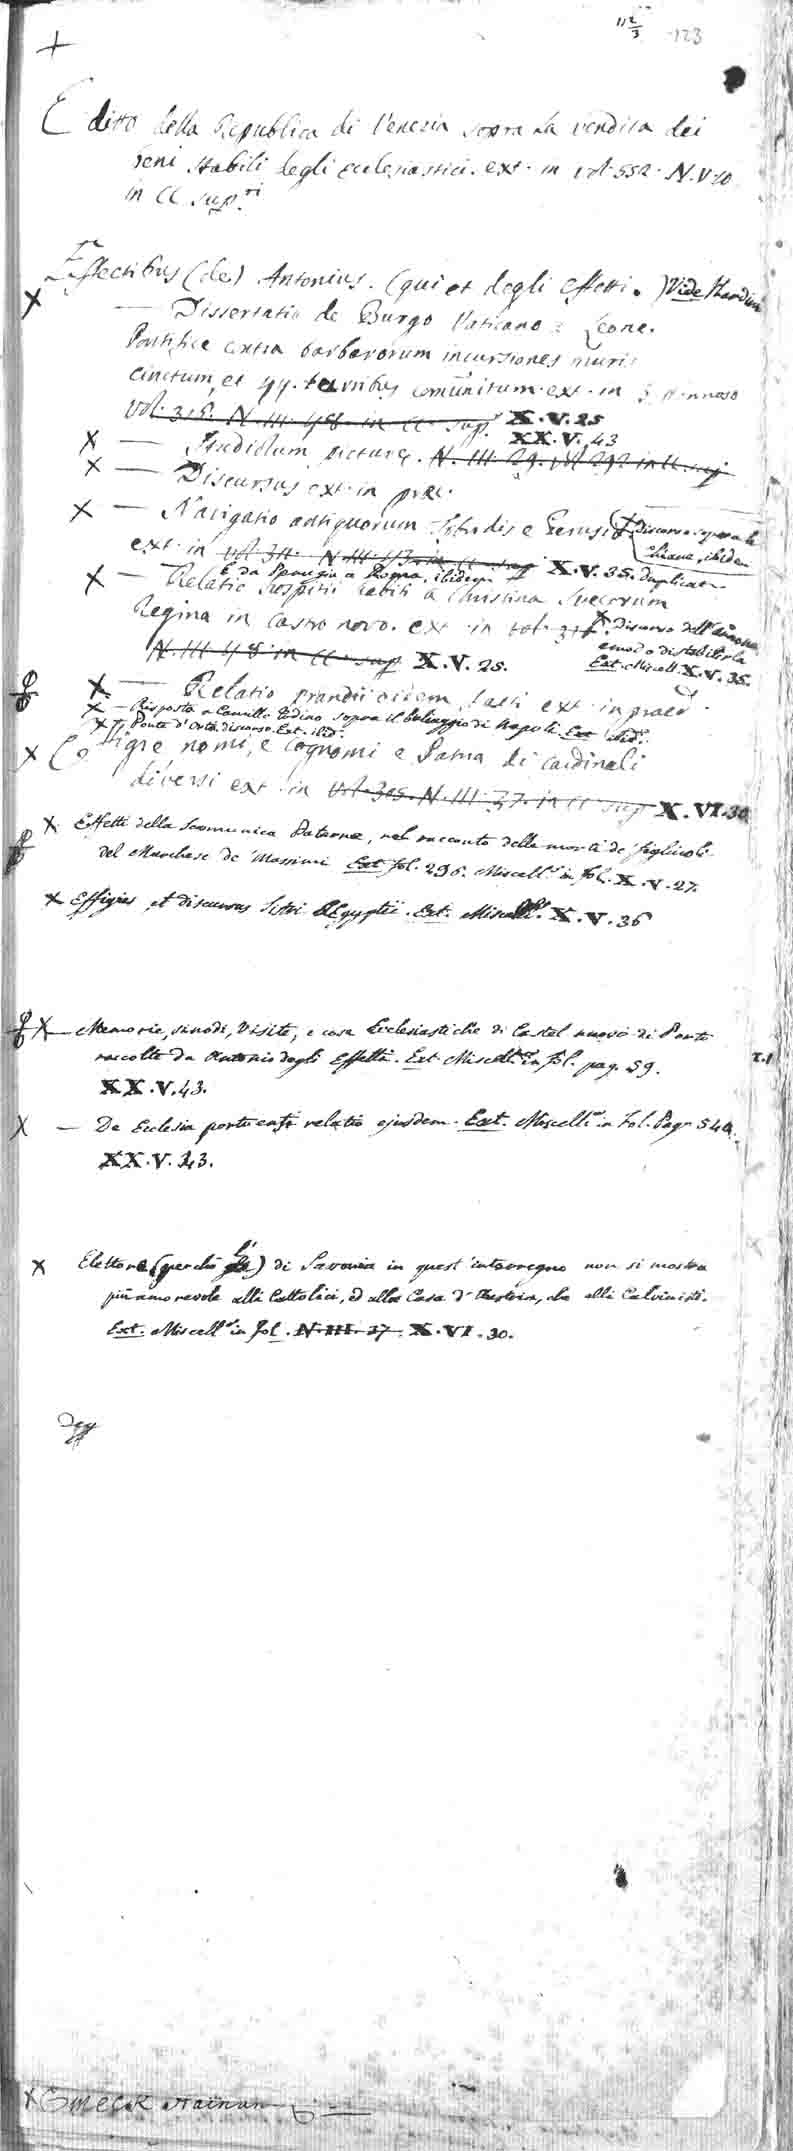 112/3 123
Editto della Republica di Venezia sopra la vendita dei
beni stabili degli ecclesiastici. ext. in vol. 552. N.V.10
in Cl. sup.ri
Effectibus (de) Antonius. (qui et degli effetti.) Vide
X — Dissertatio de Burgo Vaticano a Leone.
Pontifice contra barbarorum incursiones muris
cinctum, et 44. turribus communitum. ext. in
Vol. 316. N. III. 48. in Cl. sup. X.V.25
XX.V.43
X — Iudicium picturæ. N. III. 29. vol 292 in Cl. sup
X — Discursus ext. in præc.
X — Navigatio antiquorum Tiberis e Perusio X Discorso sopra le
Chiane, ibidem
ext. in vol. 311. N. III. 43. in Cl. sup X.V.35. duplicat
E da Perugia a Roma, ibidem
X — Relatio hospitii habiti a Christina Suecorum
Regina in Castro novo. ext. in vol. 316. X. Discorso dell'annona
e modo di stabilirla
Ext. Miscell. X.V.35.
N. III 48 in Cl. sup X.V.25.
X — Relatio prandii eidem facti ext. in praed.
X — Risposta a Camillo sopra il baliaggio di Napoli Ext ibid.
X — Ponte d'Orte discorso. Ext. ibid.
X Effigie nomi, e cognomi e Patria di Cardinali
diversi ext. in vol. 305. N. III. 37. in Cl. sup X.VI.30
X Effetti della Scomunica Paterna, nel racconto delle morti de' figliuoli
del Marchese de' Massimi Ext fol. 296. Miscell. in fol. X.V.27.
X Effigies et discursus Sistri Ægyptii. Ext. Miscell. X.V.36
X — Memorie, sinodi, Visite, e cose Ecclesiastiche di Castel nuovo di Porto
raccolte da Antonio degli Effetti. Ext. Miscell. in fol. pag. 59. T.1
XX.V.43.
X — De Ecclesia portuensi relatio ejusdem. Ext. Miscell. in Fol. Pag. 540.
XX.V.43.
X Elettore (perchè l') di Savonia in quest'interregno non si mostra
più amorevole alli Cattolici, ed alla Casa d'Austria, che alli Calvinisti.
Ext. Miscell. in fol. N. III. 37. X.VI.30.
X Gmeck